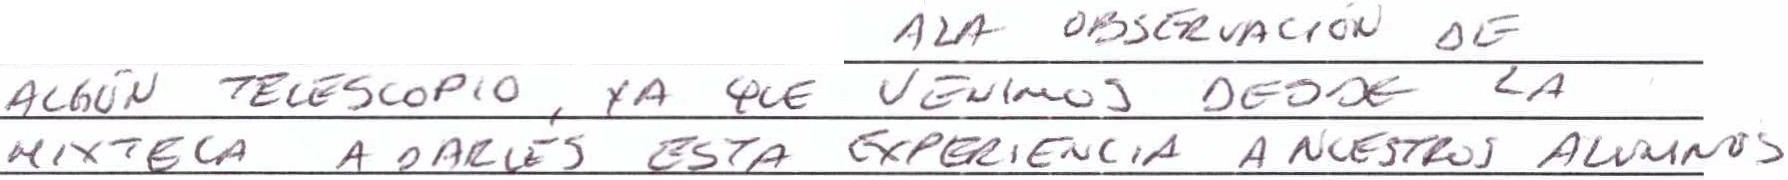 ALA OBSERVACIÓN DE
ALGÚN TELESCOPIO, YA QUE VENIMOS DESDE LA
MIXTECA A DARLES ESTA EXPERIENCIA A NUESTROS ALUMNOS